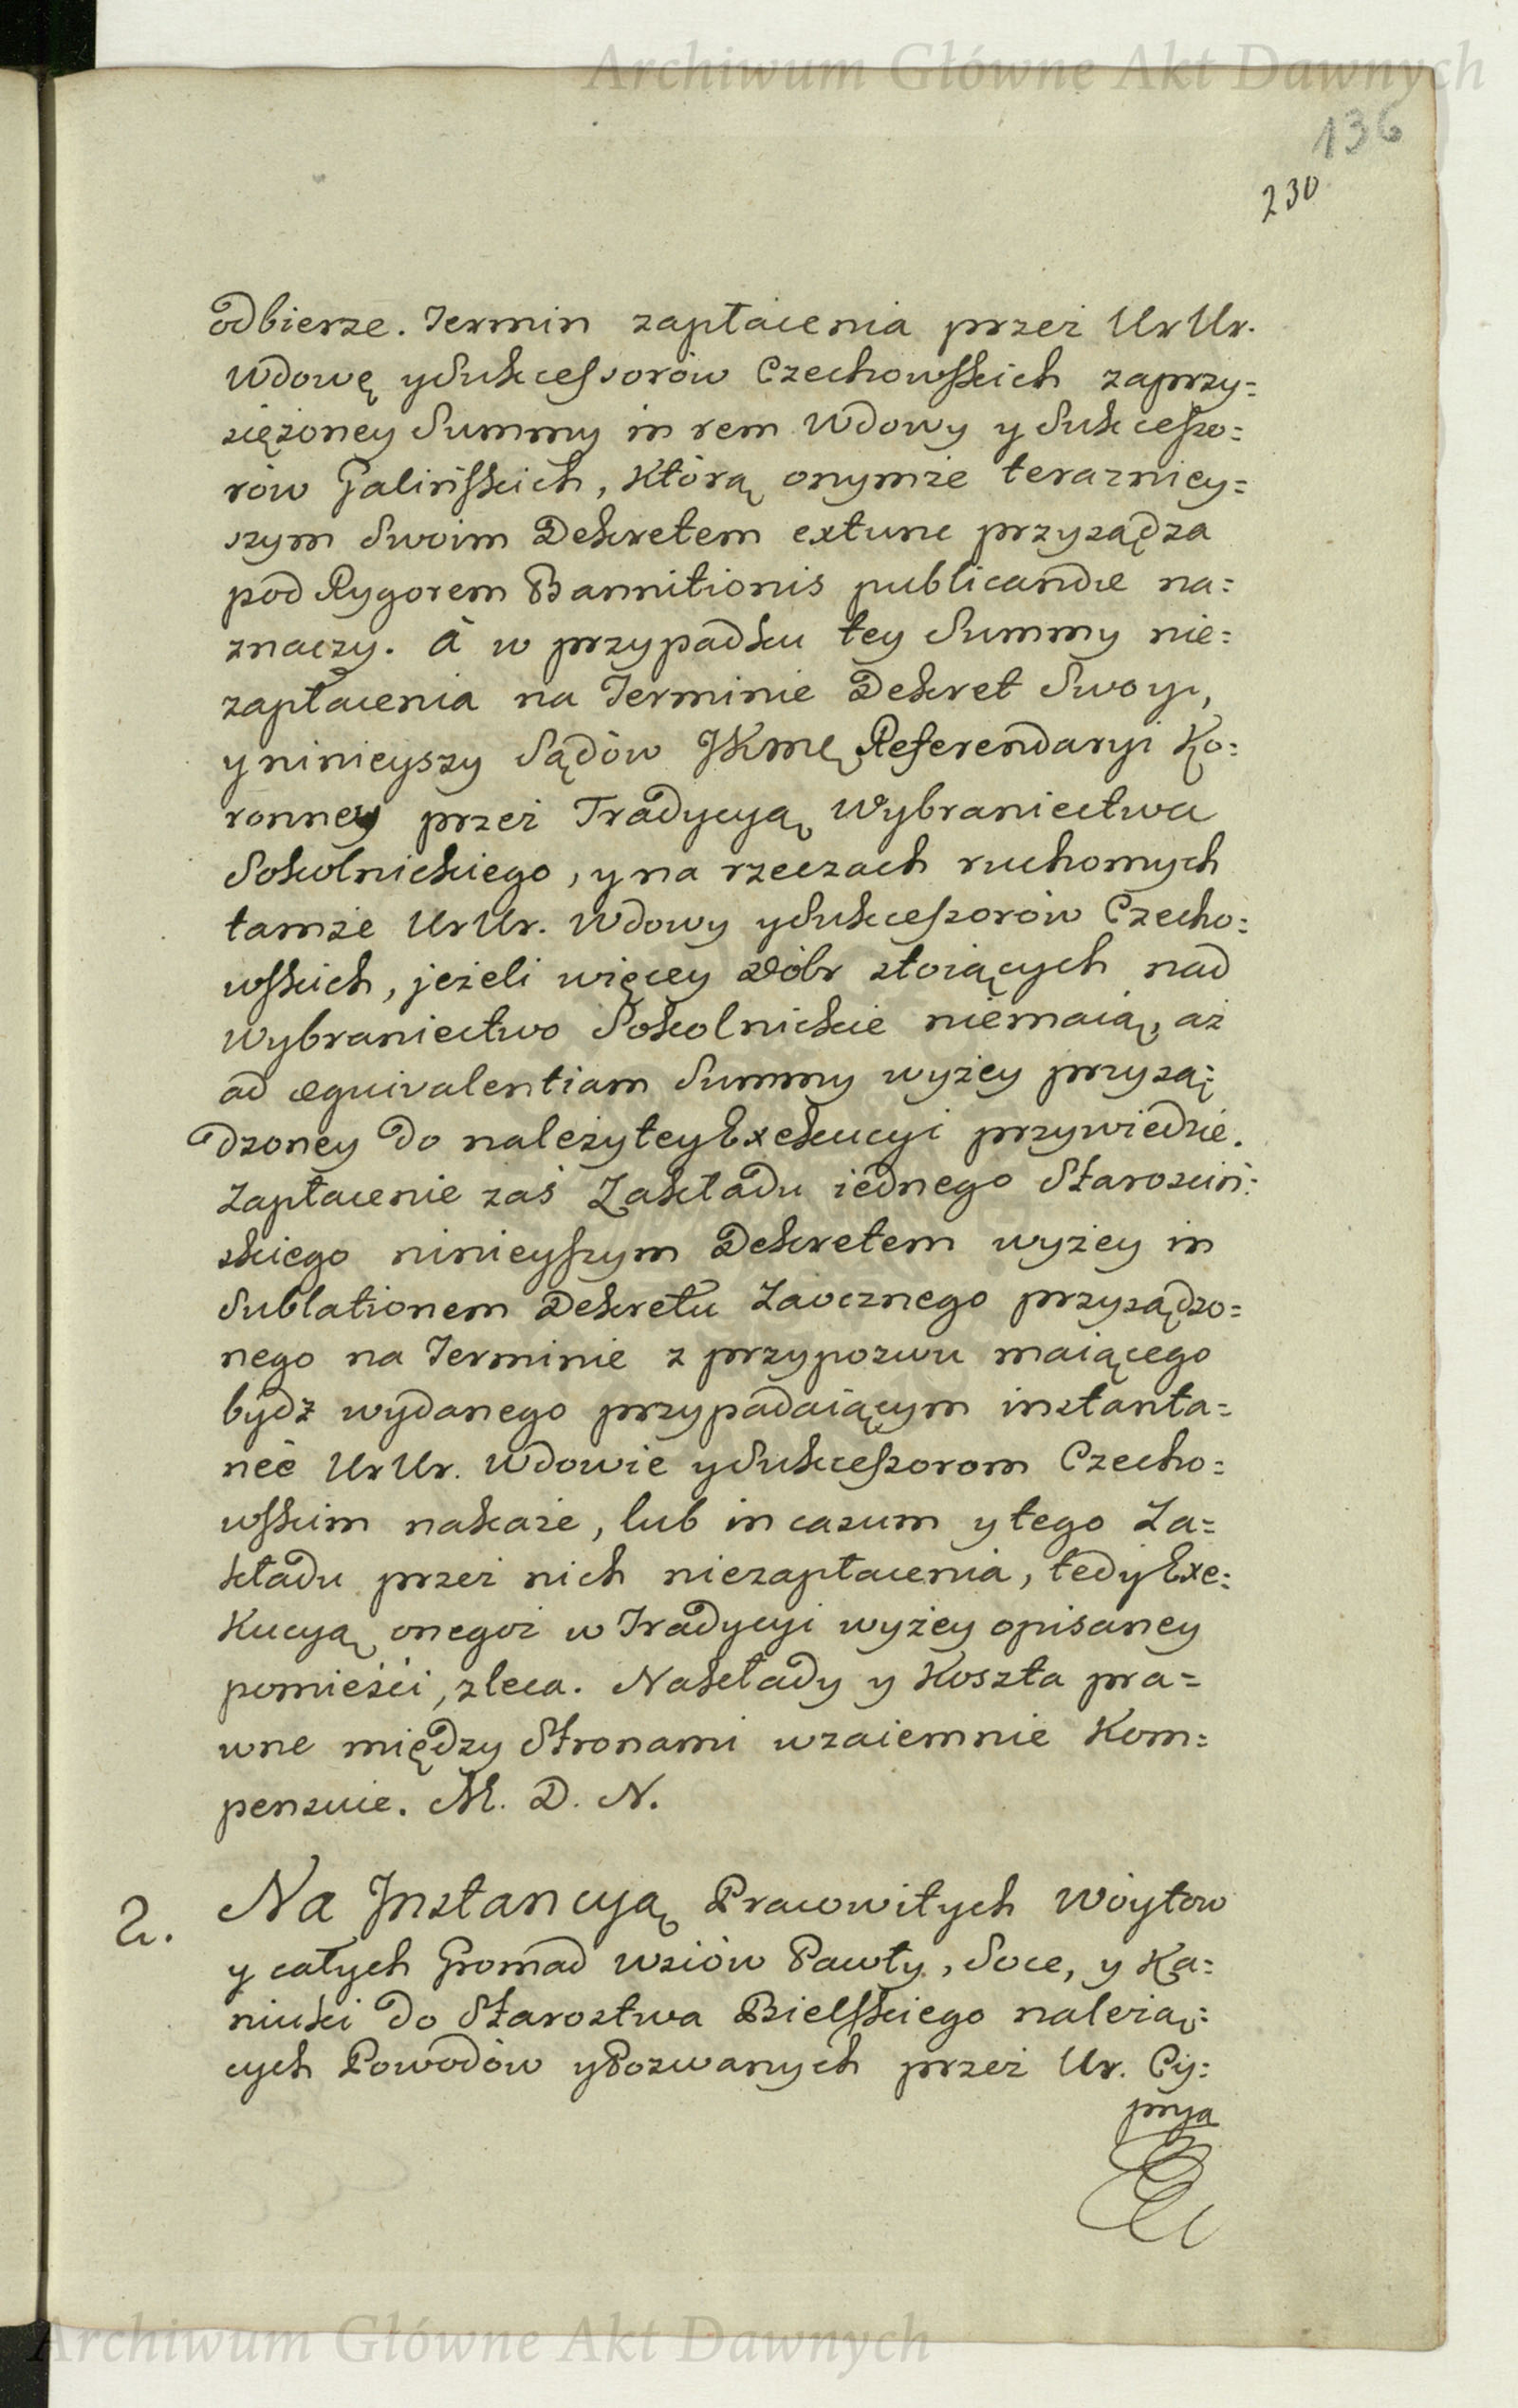 Archiwum Główne Akt Dawnych
136
230
odbierze. Termin zapłacenia przez UrUr.
Wdowę y Sukcessorów Czechowskich zaprzy=
siężoney Summy in rem Wdowy y Sukcesso=
rów Galińskich, którą onymże terazniey=
szym Swoim Dekretem extunc przysądza
pod Rygorem Bannitionis publicandæ na=
znaczy. à w przypadku tey Summy nie=
zapłacenia na Terminie Dekret Swoy,
y ninieyszy Sądów JKmci Referendaryi Ko=
ronney przez Tradycyą Wybraniectwa
Sokolnickiego, y na rzeczach ruchomych
tamże UrUr. Wdowy y Sukcessorów Czecho=
wskich, jeżeli więcey Dóbr stoiących nad
Wybraniectwo Sokolnickie niemaią, aż
ad æquivalentiam Summy wyżey przysą=
dzoney do należytey Exekucyi przywiedzie.
Zapłacenie zaś Zakładu iednego Starościń=
skiego ninieyszym Dekretem wyżey in
Sublationem Dekretu Zaocznego przysądzo=
nego na Terminie z przypozwu maiącego
bydź wydanego przypadaiącym instanta=
neè UrUr. Wdowie y Sukcessorom Czecho=
wskim nakaże, lub in casum y tego Za=
kładu przez nich niezapłacenia, tedy Exe=
kucyą onegoż w Tradycyi wyżey opisaney
pomieści, zleca. Nakłady y Koszta pra=
wne między Stronami wzaiemnie Kom=
pensuie. M. D. N.
2. Na Jnstancyą Pracowitych Woytow
y całych Gromad wsiów Pawły, Soce, y Ka=
niuki do Starostwa Bielskiego należą=
cych Powodów y Pozwanych przez Ur. Cy=
prya
Archiwum Główne Akt Dawnych